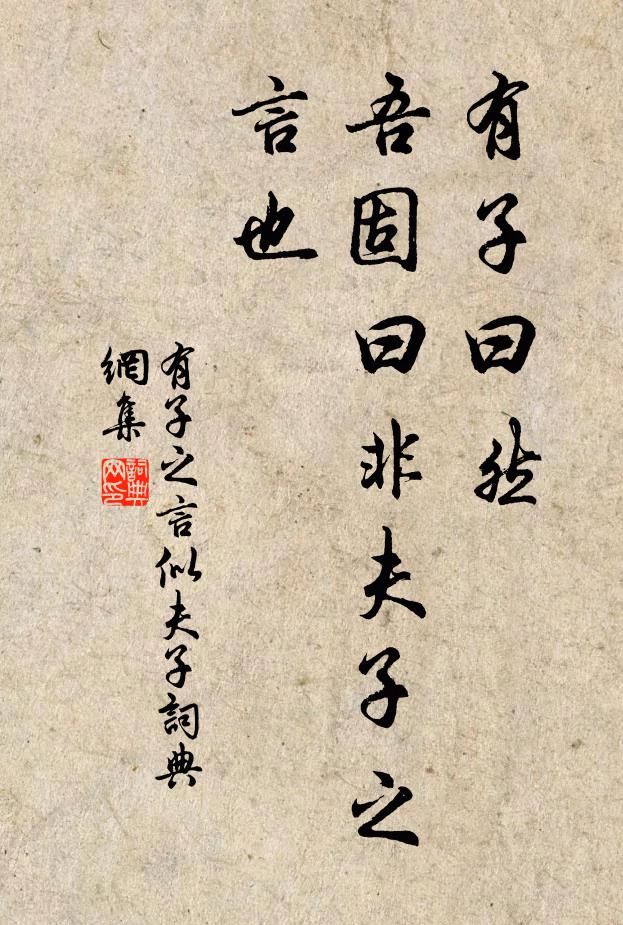 有子曰然
吾固曰非夫子之
言也
有子之言似夫子詞典
網集
詞典
网印